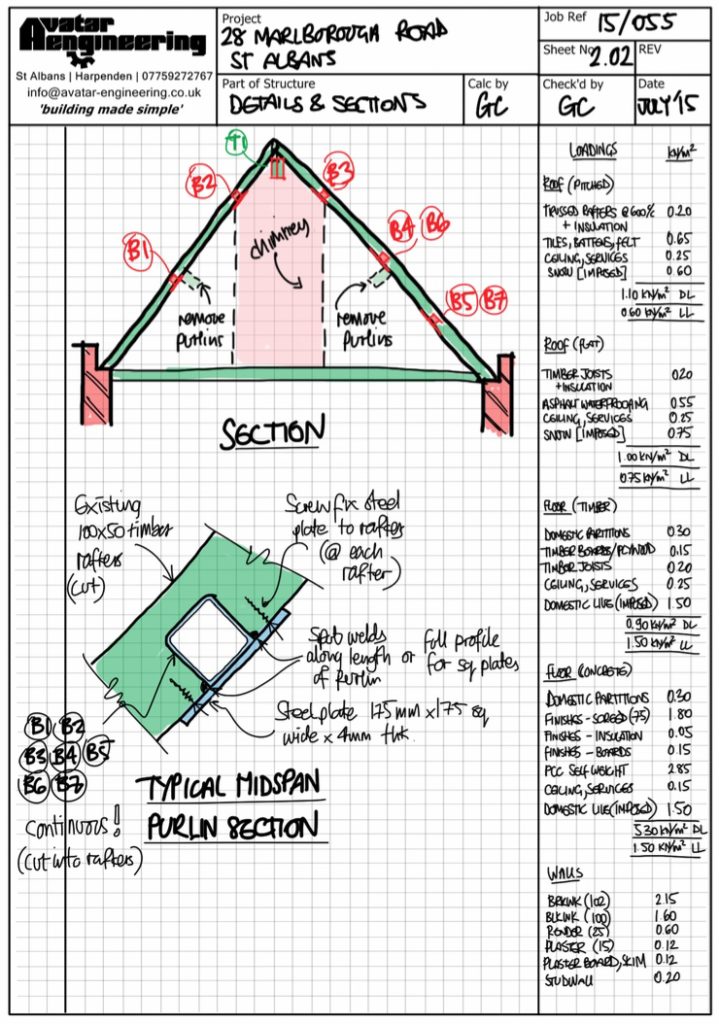 Avatar
Aengineering
St Albans | Harpenden | 07759272767
info@avatar-engineering.co.uk
'building made simple'
Project
28 MARLBOROUGH ROAD
ST ALBANS
Part of Structure
DETAILS & SECTIONS
Calc by
GC
Job Ref
15/055
Sheet No
2.02
REV
Check'd by
GC
Date
JULY '15
T1
B2
B3
B1
B4 B6
B5 B7
chimney
remove
purlins
remove
purlins
SECTION
Existing
100x50 timber
rafters
(cut)
Screw fix steel
plate to rafters
(@ each
rafter)
Spot welds
along length or
of purlin
full profile
for sq plates
Steel plate 175mm x 175 sq
wide x 4mm thk.
B1 B2
B3 B4 B5
B6 B7
continuous!
(cut into rafters)
TYPICAL MIDSPAN
PURLIN SECTION
LOADINGS KN/m²
ROOF (PITCHED)
TRUSSED RAFTERS @ 600% 0.20
+ INSULATION
TILES, BATTENS, FELT 0.65
CEILING, SERVICES 0.25
SNOW [IMPOSED] 0.60
1.10 KN/m² DL
0.60 KN/m² LL
ROOF (FLAT)
TIMBER JOISTS 0.20
+ INSULATION
ASPHALT WATERPROOFING 0.55
CEILING, SERVICES 0.25
SNOW [IMPOSED] 0.75
1.00 KN/m² DL
0.75 KN/m² LL
FLOOR (TIMBER)
DOMESTIC PARTITIONS 0.30
TIMBER BOARDS/PLYWOOD 0.15
TIMBER JOISTS 0.20
CEILING, SERVICES 0.25
DOMESTIC LIVE (IMPOSED) 1.50
0.90 KN/m² DL
1.50 KN/m² LL
FLOOR (CONCRETE)
DOMESTIC PARTITIONS 0.30
FINISHES - SCREED (75) 1.80
FINISHES - INSULATION 0.05
FINISHES - BOARDS 0.15
PCC SELF WEIGHT 2.85
CEILING, SERVICES 0.15
DOMESTIC LIVE (IMPOSED) 1.50
5.30 KN/m² DL
1.50 KN/m² LL
WALLS
BRKINK (102) 2.15
BLKINK (100) 1.60
RENDER (25) 0.60
PLASTER (15) 0.12
PLASTER BOARD, SKIM 0.12
STUDWALL 0.20